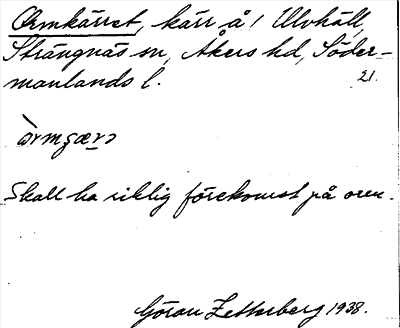 Ormkärret, kärr å! Ulvhäll,
Strängnäs sn, Åkers hd, Söder-
manlands l. 21.
òrmʂærə
Skall ha riklig förekomst på orm.
Göran Zetterberg 1938.